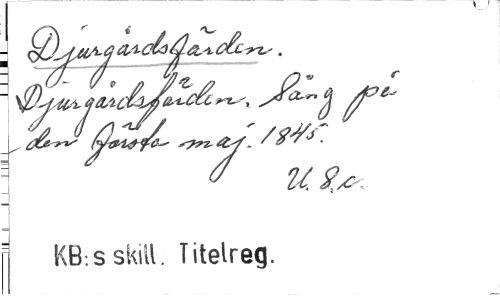 Djurgårdsfärden.
Djurgårdsfärden. Sång på
den första maj. 1845.
U. å. c.
KB:s skill. Titelreg.